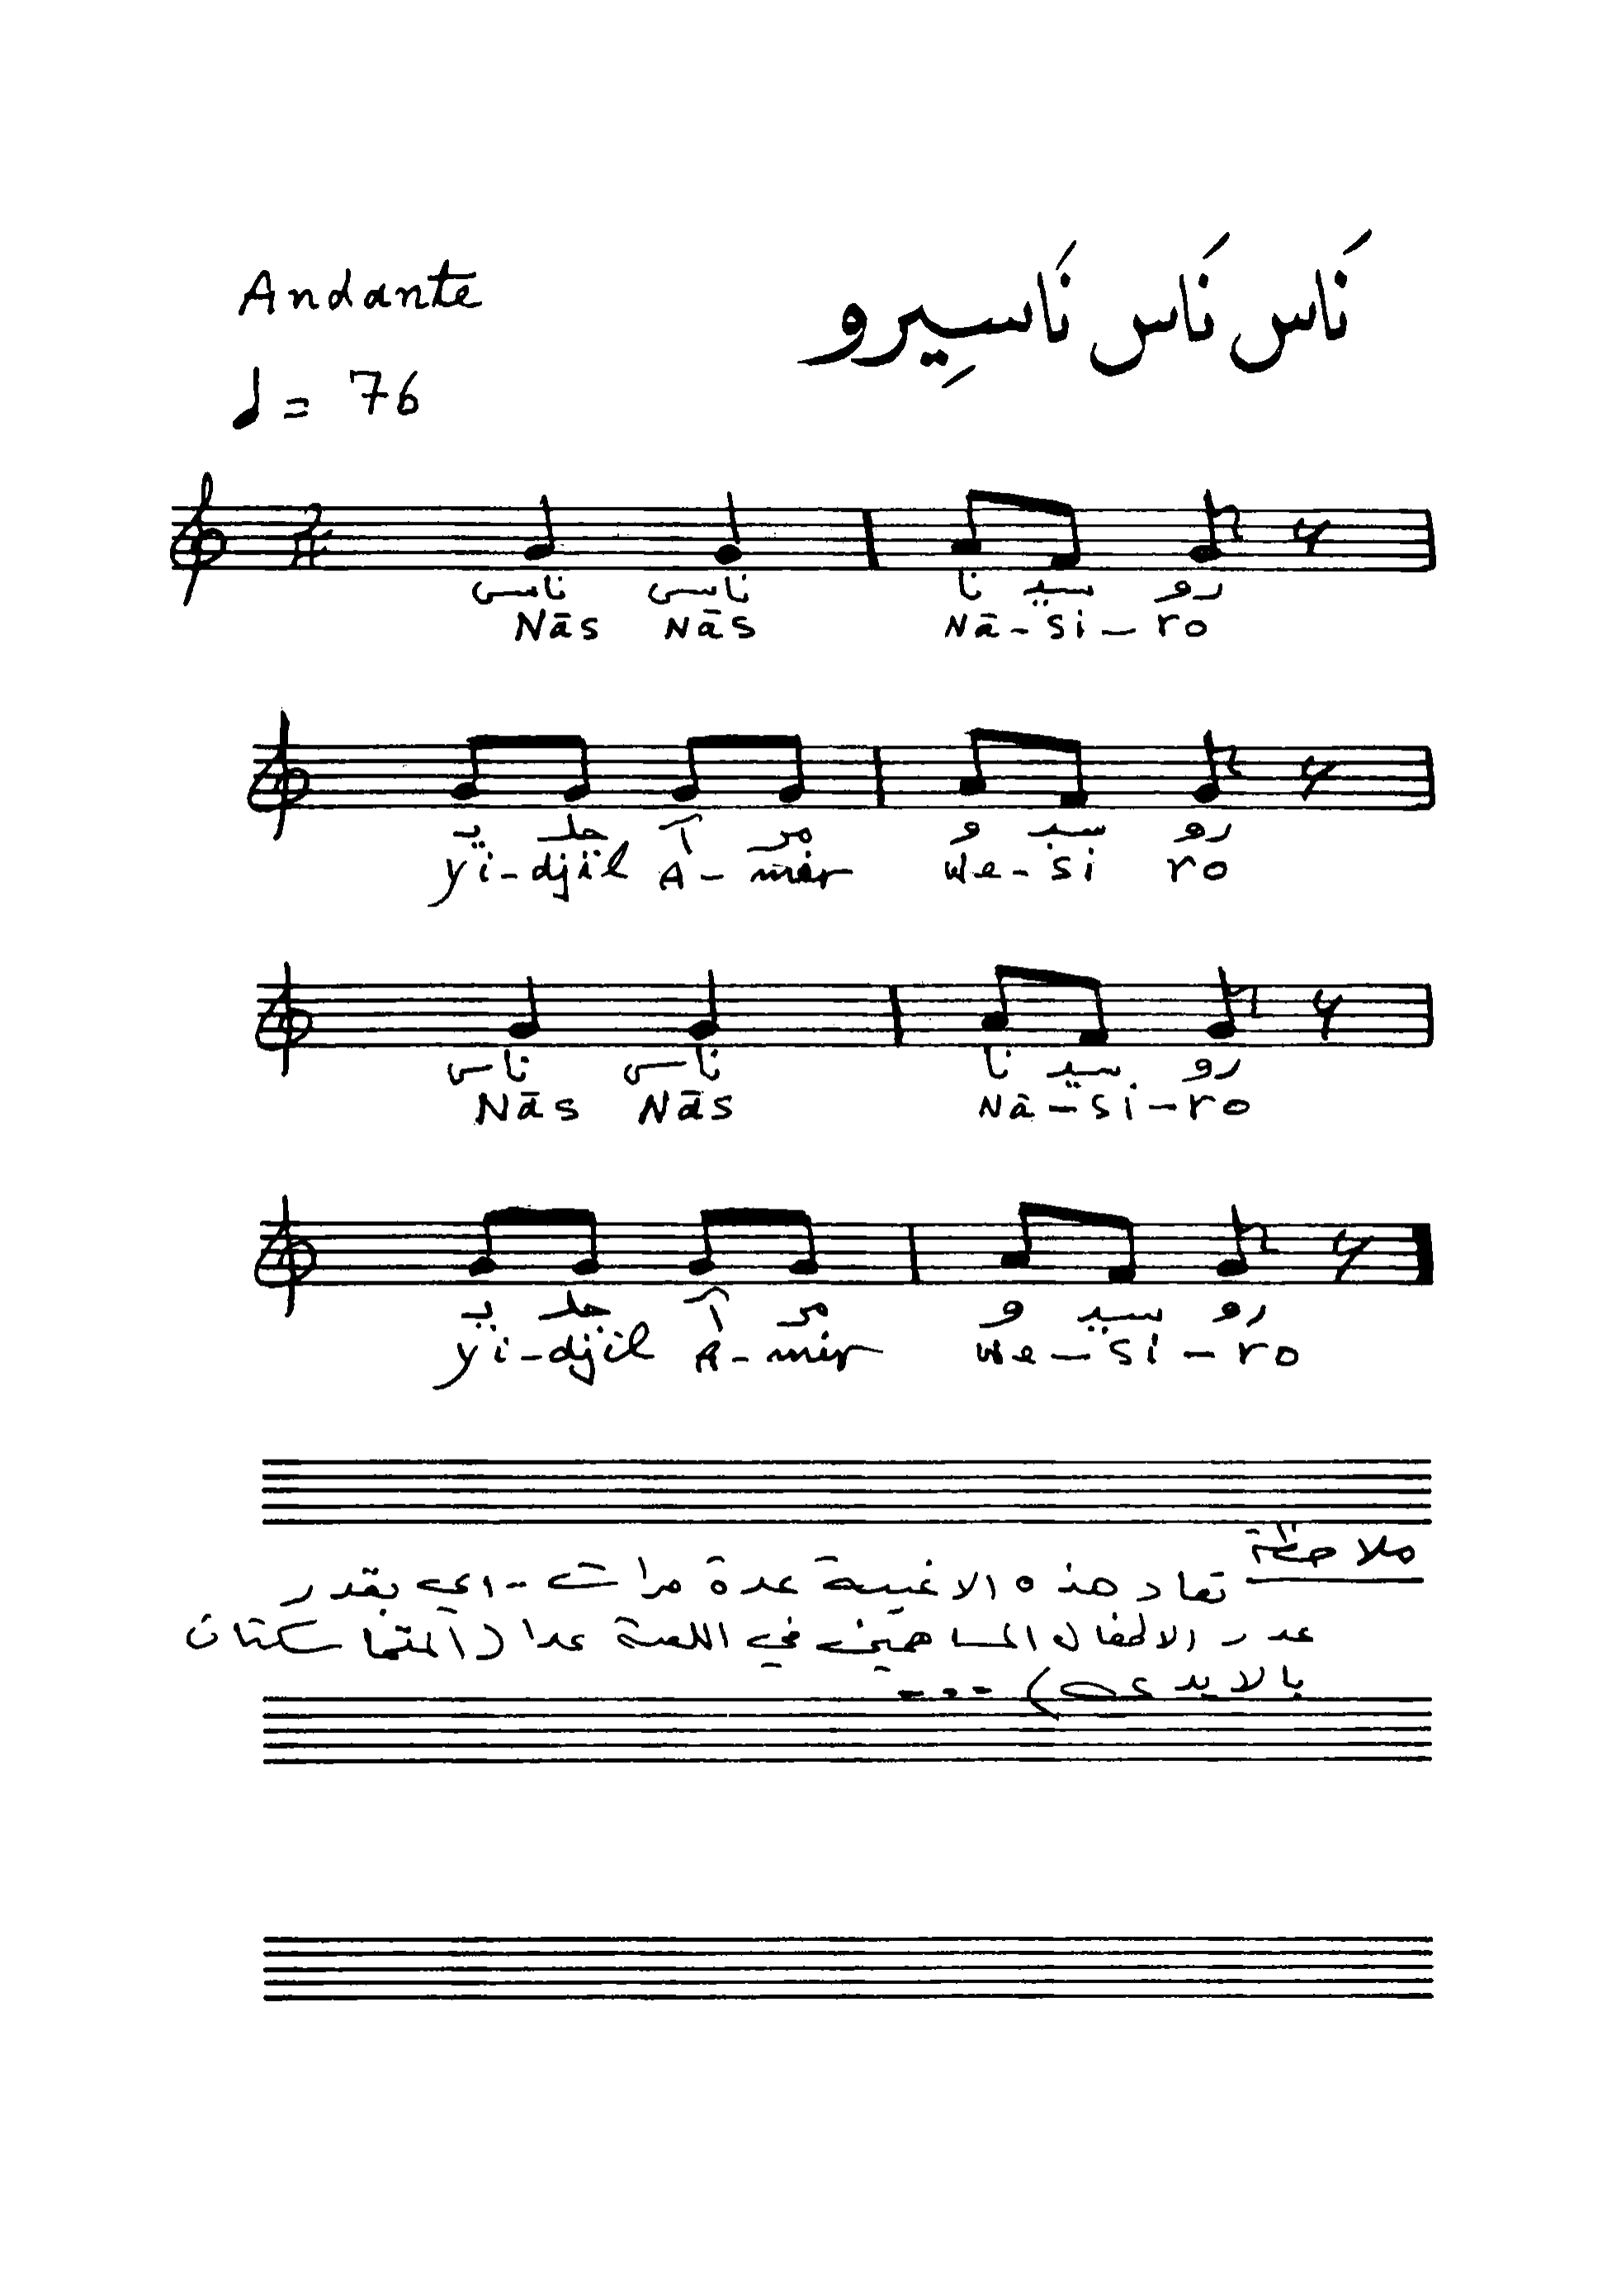 Andante
نَاس نَاس نَاسِيرو
♩ = 76
2/4
ناس ناس نا سيـ رو
Nās Nās Nā-si-ro
يـ جلـ آ مر و سيـ رو
yi-djil A-mir we-si ro
ناس ناس نا سيـ رو
Nās Nās Nā-si-ro
يـ جلـ آ مر و سيـ رو
yi-djil A-mir we-si-ro
ملاحظة
تعاد هذه الاغنية عدة مرات - اي بقدر
عدد الاطفال المساهمين في اللعبة عدا (المتماسكتان
بالايدي) ...